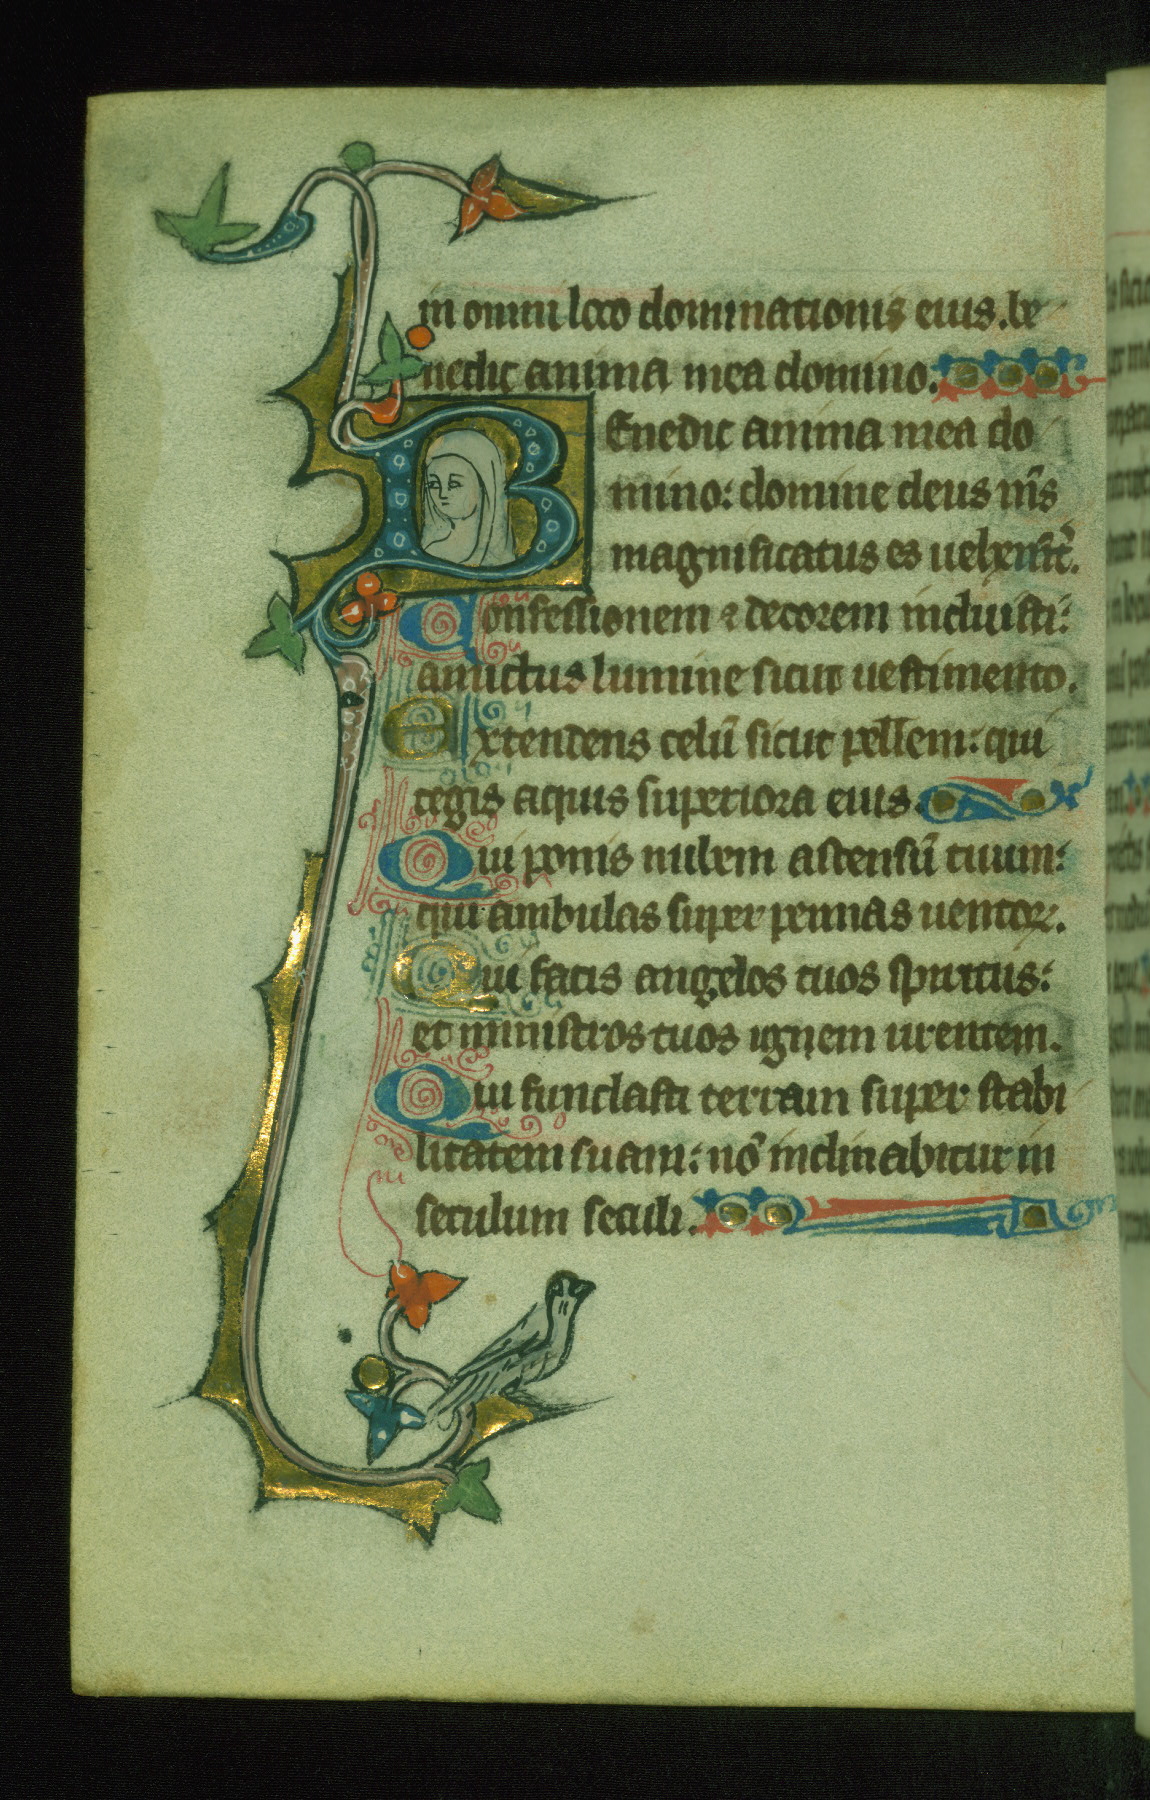 in omni loco dominationis eius. be
nedic anima mea domino.
Benedic anima mea do
mino: domine deus nr̄s
magnificatus es uehemēt᷑.
Confessionem ⁊ decorem induisti:
amictus lumine sicut uestimento.
Extendens celū sicut pellem: qui
tegis aquis superiora eius.
Qui ponis nubem ascensū tuum:
qui ambulas super pennas uentoꝝ.
Qui facis angelos tuos spiritus:
et ministros tuos ignem urentem.
Qui fundasti terram super stabi
litatem suam: nō inclinabitur in
seculum seculi.